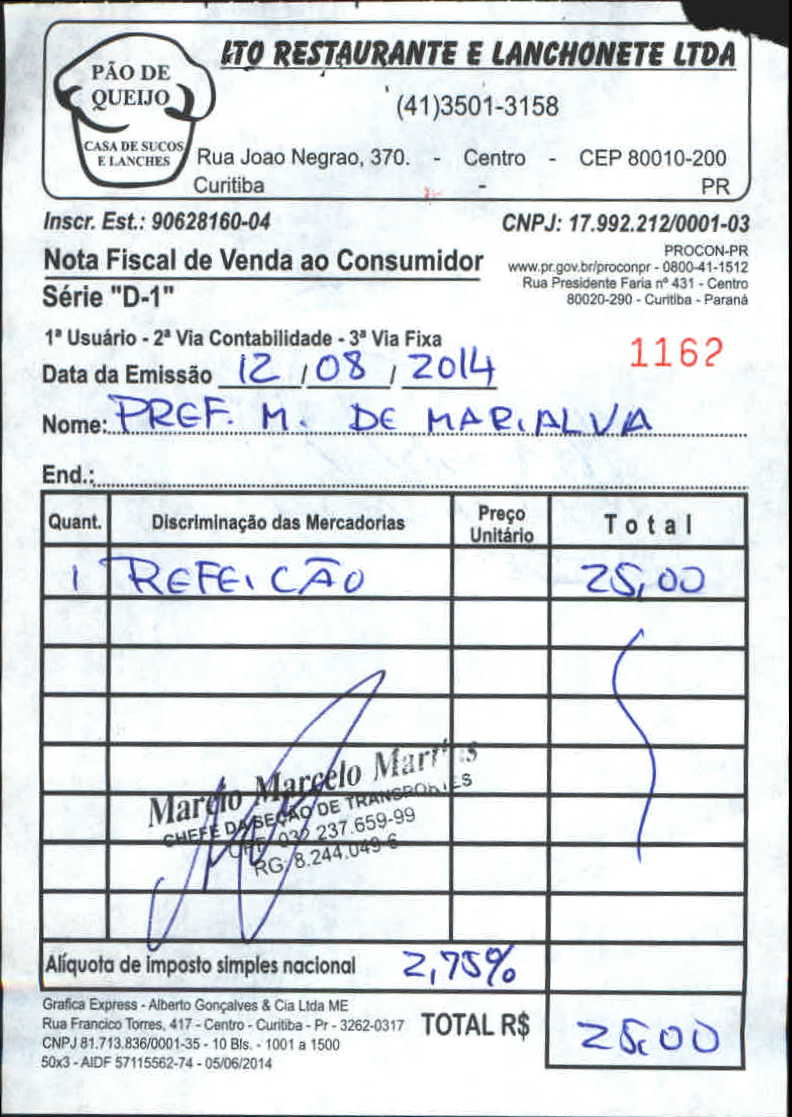 PÃO DE
QUEIJO
CASA DE SUCOS
E LANCHES
LTO RESTAURANTE E LANCHONETE LTDA
(41)3501-3158
Rua Joao Negrao, 370. - Centro - CEP 80010-200
Curitiba - PR
Inscr. Est.: 90628160-04 CNPJ: 17.992.212/0001-03
Nota Fiscal de Venda ao Consumidor
Série "D-1"
PROCON-PR
www.pr.gov.br/proconpr - 0800-41-1512
Rua Presidente Faria nº 431 - Centro
80020-290 - Curitiba - Paraná
1ª Usuário - 2ª Via Contabilidade - 3ª Via Fixa
1162
Data da Emissão 12 / 08 / 2014
Nome: PREF. M. DE MARIALVA
End.:
Quant. Discriminação das Mercadorias Preço Unitário Total
1 REFEICÃO 25,00
Marcio Marcelo Martins
CHEFE DA SEÇÃO DE TRANSPORTES
CPF: 032.237.659-99
RG: 8.244.049-6
Alíquota de imposto simples nacional 2,75%
Grafica Express - Alberto Gonçalves & Cia Ltda ME
Rua Francico Torres, 417 - Centro - Curitiba - Pr - 3262-0317
CNPJ 81.713.836/0001-35 - 10 Bls. - 1001 a 1500
50x3 - AIDF 57115562-74 - 05/06/2014
TOTAL R$ 25,00